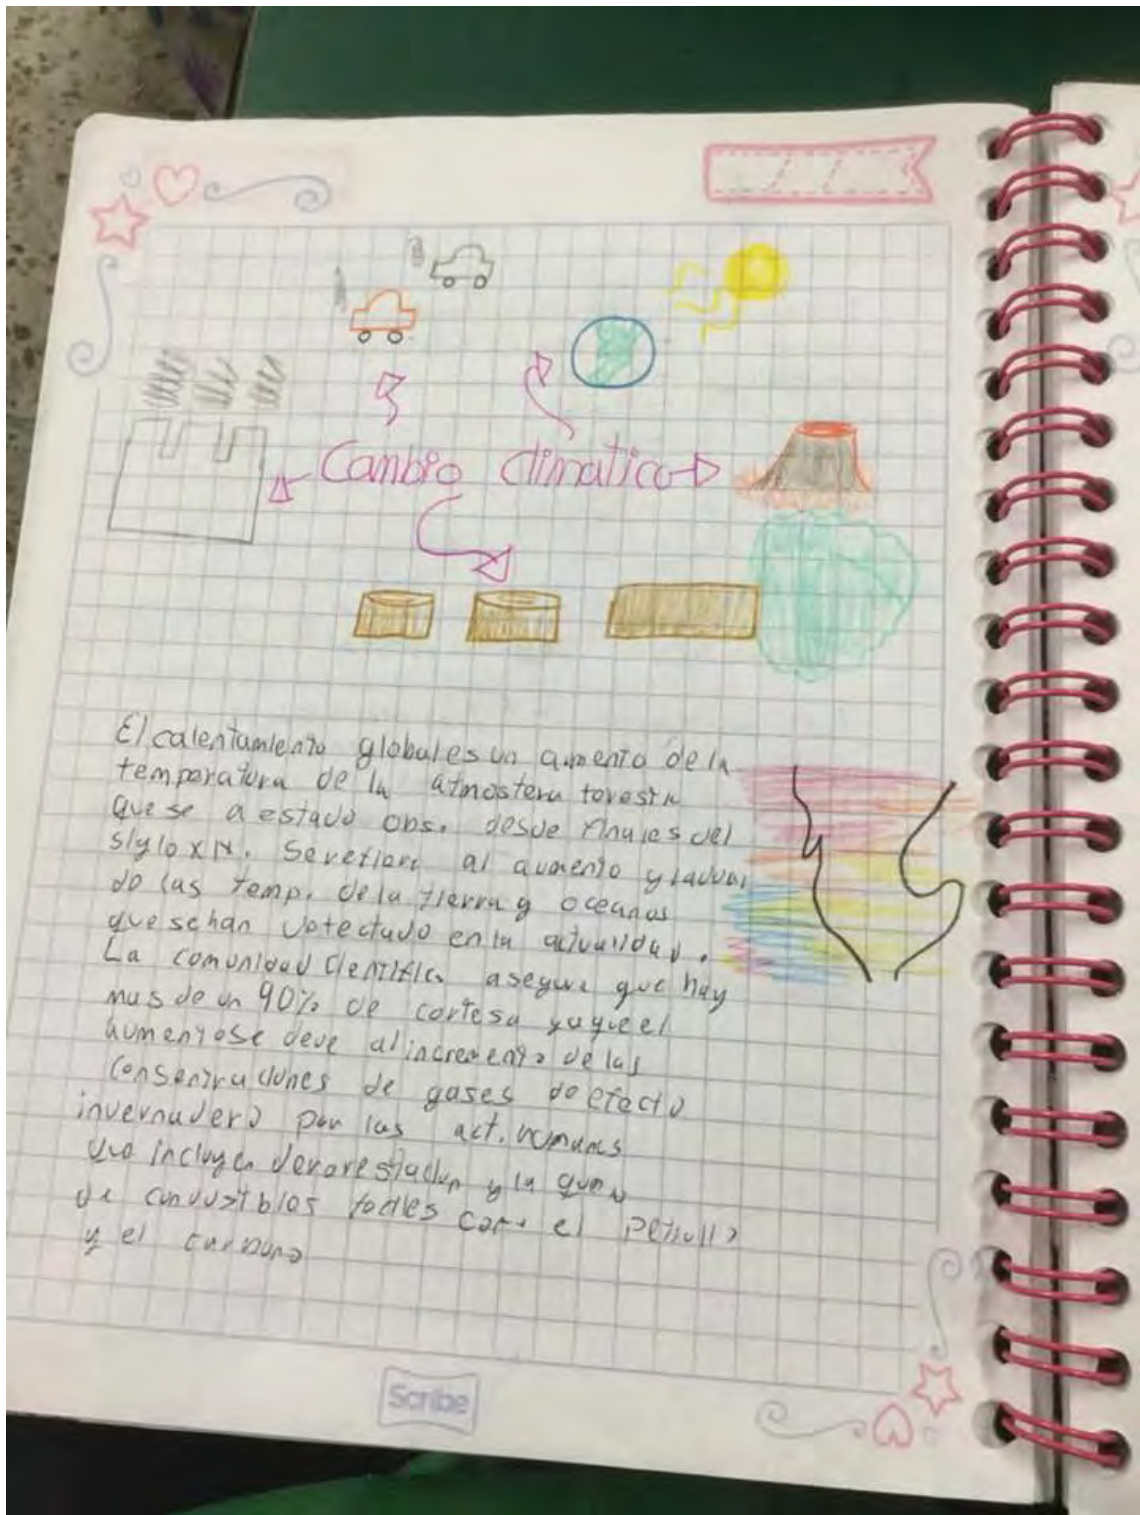 Cambio climatico
El calentamiento global es un aumento de la
temperatura de la atmosfera
que se a estado obs. desde finales del
siglo XIX. Se refiere al aumento gradual
de las temp. de la tierra y oceanos
que se han detectado en la actualidad.
La comunidad cientifica asegura que hay
mas de un 90% de cortesa ya que el
aumento se deve al incremento de las
consentraciones de gases de efecto
invernadero por las act. humanas
que incluyen deforestacion y la quema
de conbustibles fociles como el petrolio
y el carbono
Scribe